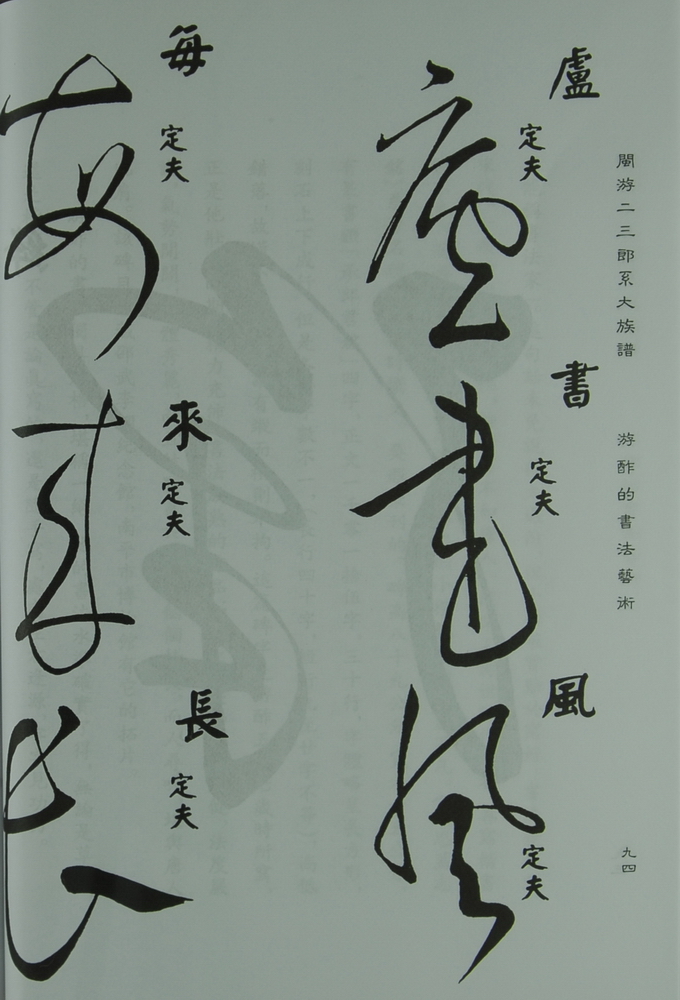 閩游二三郎系大族譜 游酢的書法藝術 九四
盧 定夫
書 定夫
風 定夫
每 定夫
來 定夫
長 定夫